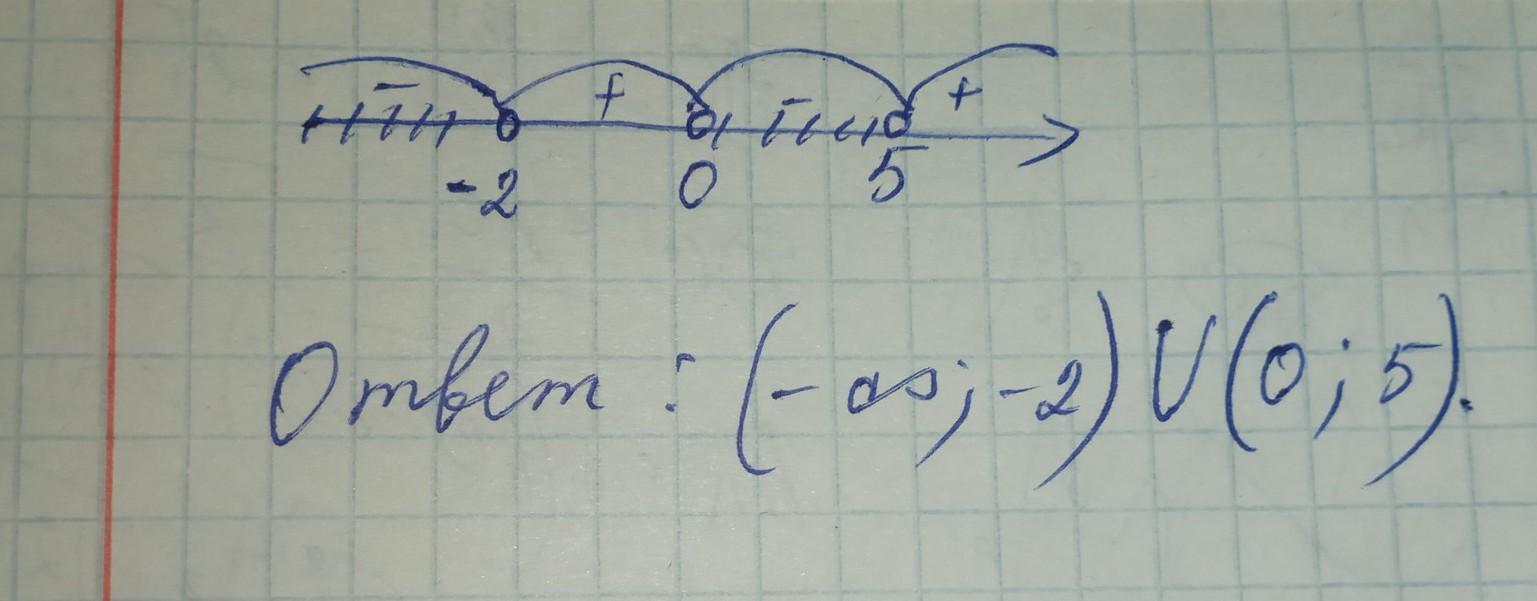 - + - +
-2 0 5
Ответ: (-∞; -2) U (0; 5).